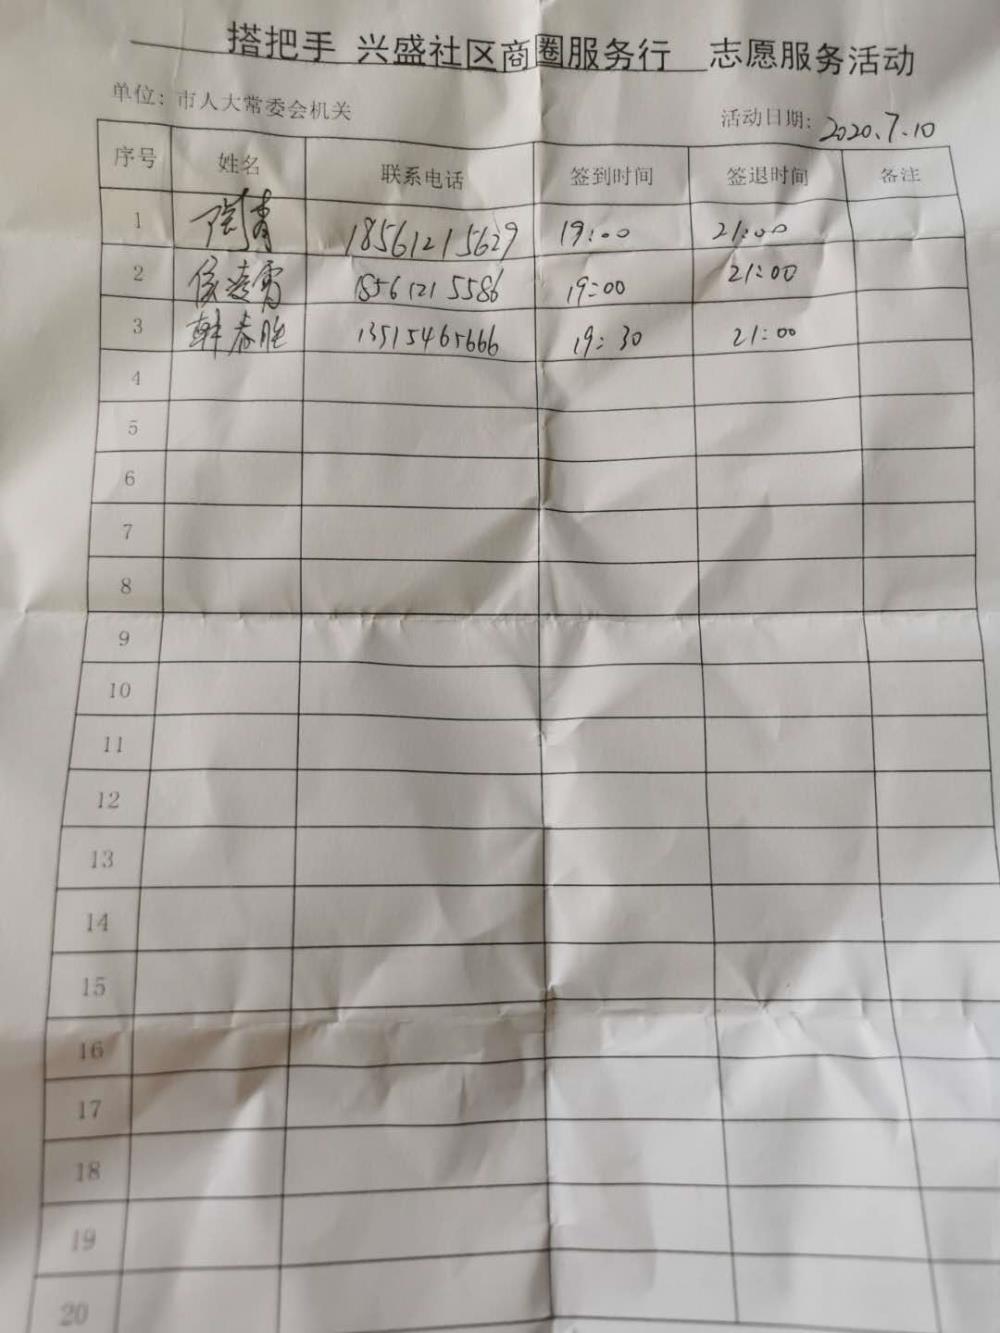 搭把手 兴盛社区商圈服务行 志愿服务活动
单位：市人大常委会机关 活动日期：2020.7.10
序号 姓名 联系电话 签到时间 签退时间 备注
1 陶青 18561215629 19:00 21:00
2 侯凌霄 18561215586 19:00 21:00
3 韩春胜 13515465666 19:30 21:00
4
5
6
7
8
9
10
11
12
13
14
15
16
17
18
19
20